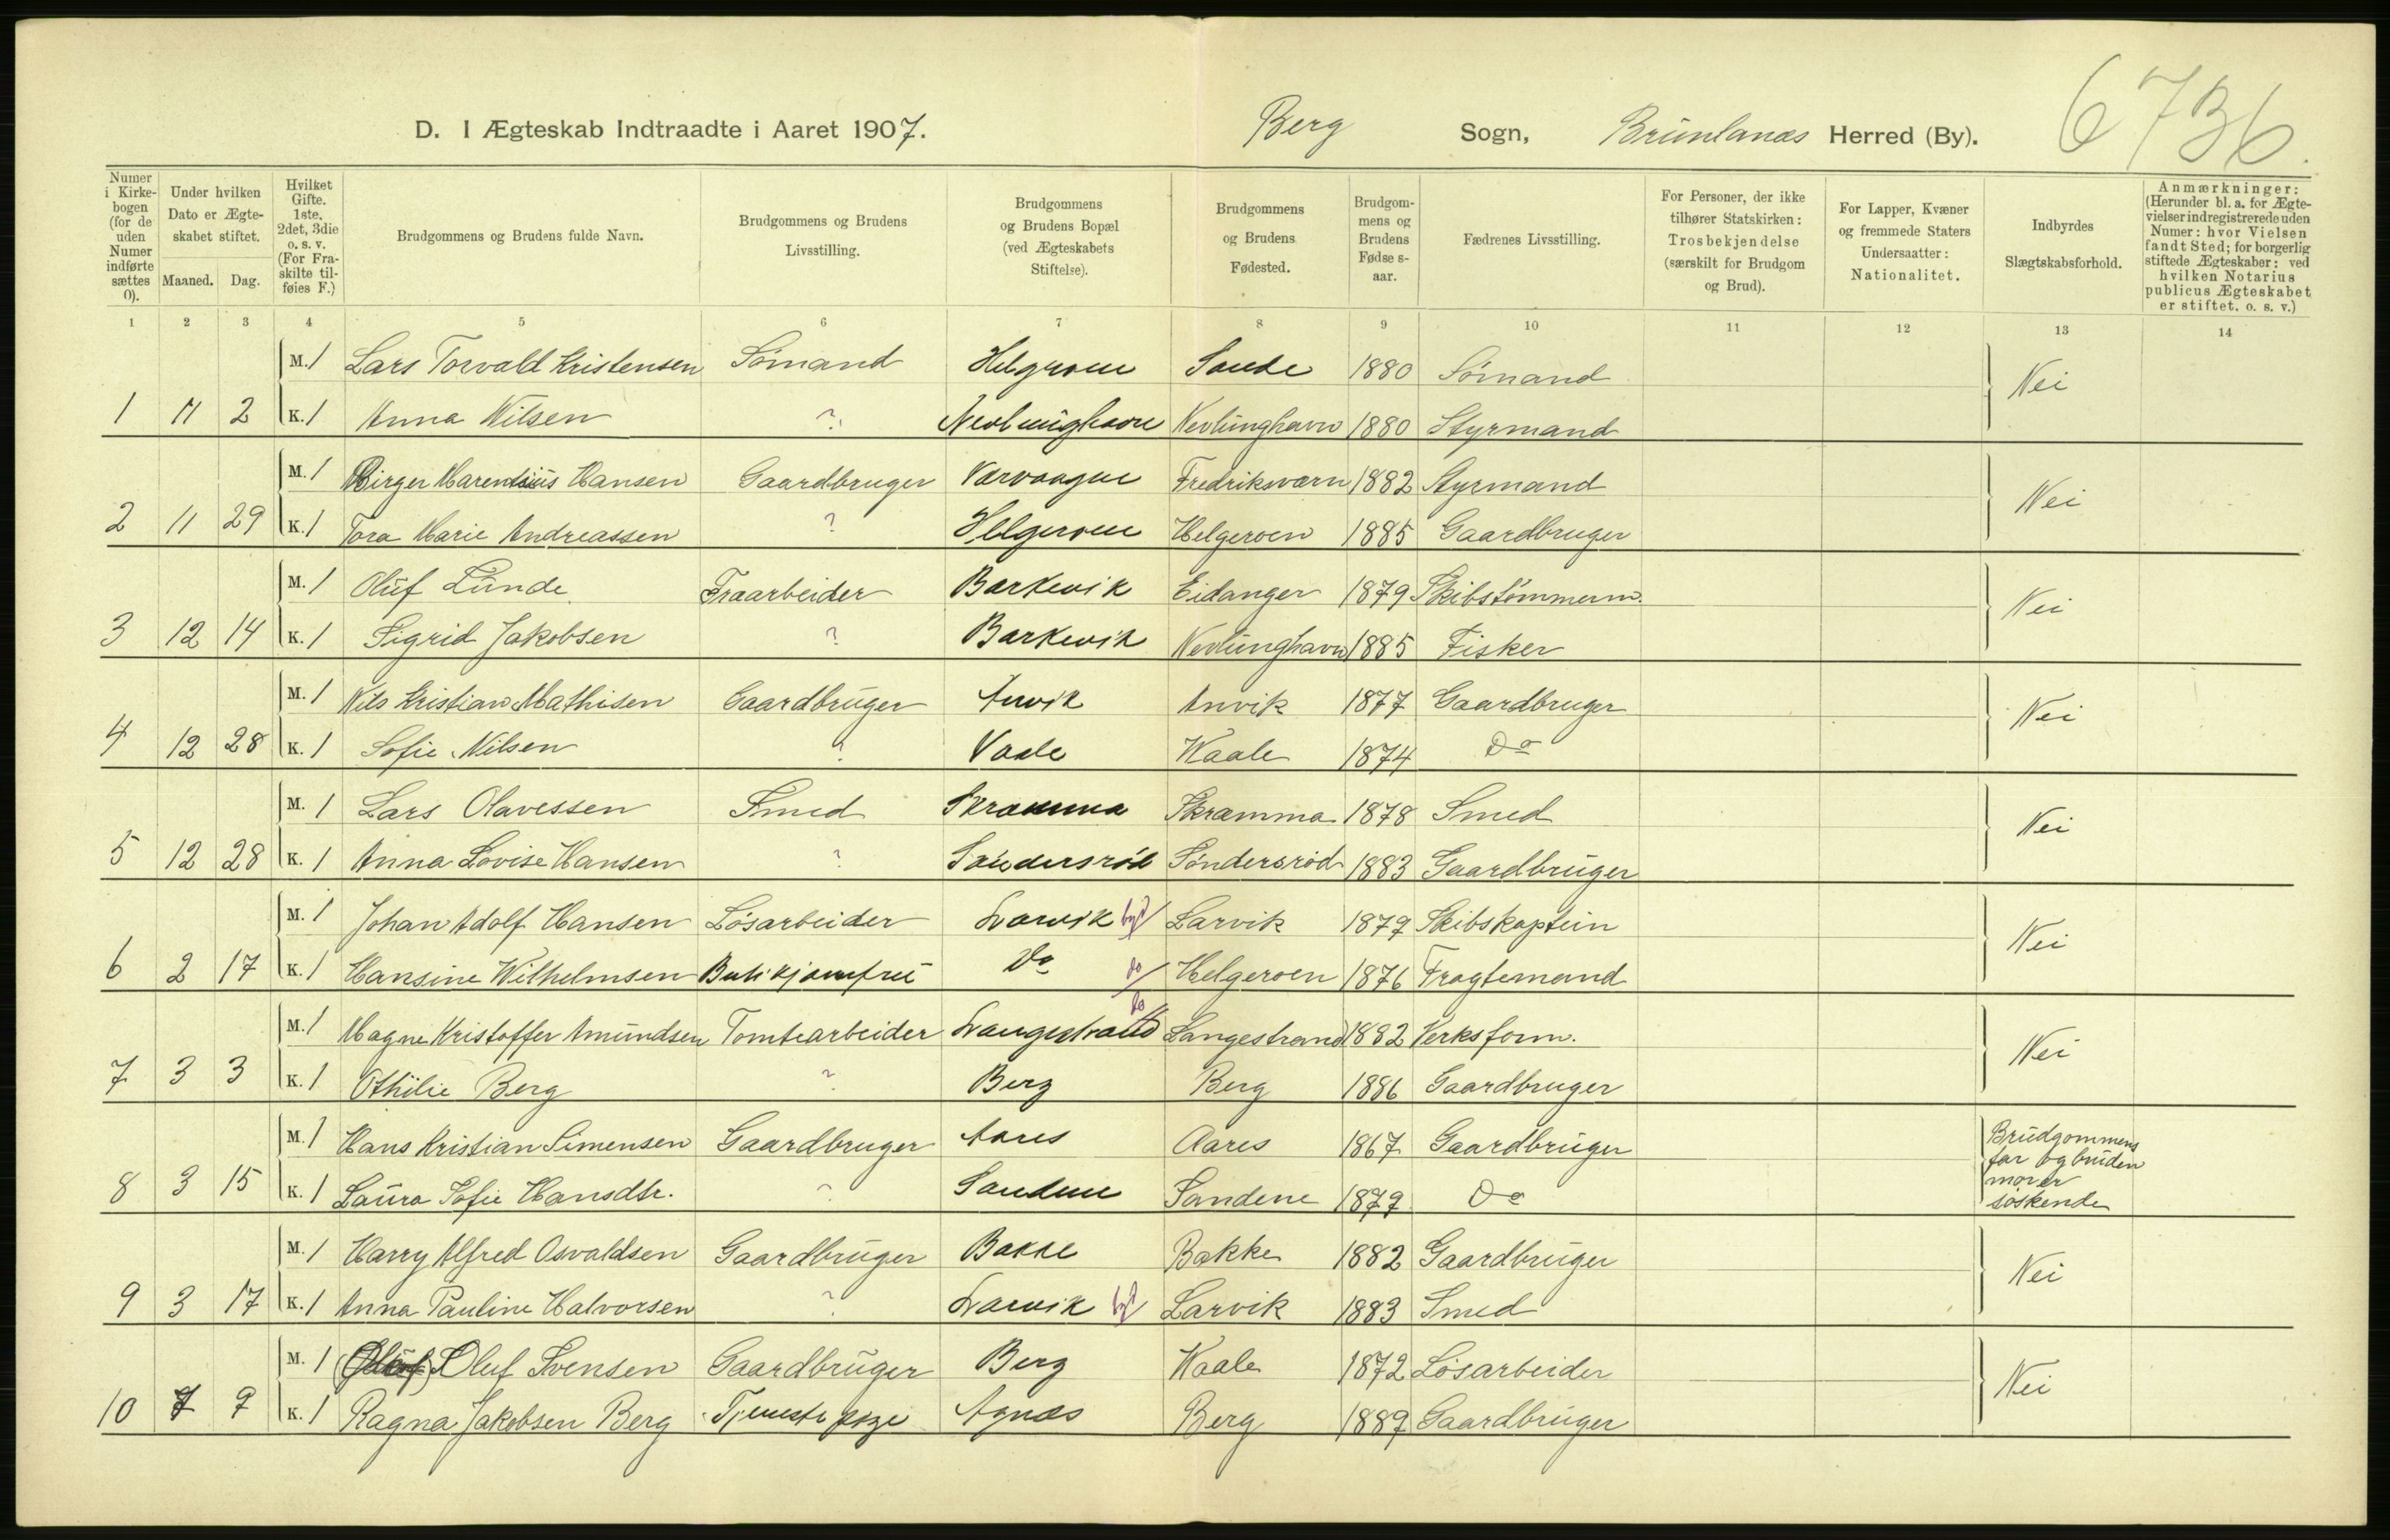 D. I Ægteskab Indtraadte i Aaret 1907. Berg Sogn, Brunlanæs Herred (By). 6736.
Numer i Kirkebogen (for de uden Numer indførte sættes 0).
Under hvilken Dato er Ægteskabet stiftet.
Maaned. Dag.
Hvilket Gifte. 1ste, 2det, 3die o. s. v. (For Fraskilte tilføies F.)
Brudgommens og Brudens fulde Navn.
Brudgommens og Brudens Livsstilling.
Brudgommens og Brudens Bopæl (ved Ægteskabets Stiftelse).
Brudgommens og Brudens Fødested.
Brudgommens og Brudens Fødselsaar.
Fædrenes Livsstilling.
For Personer, der ikke tilhører Statskirken: Trosbekjendelse (særskilt for Brudgom og Brud).
For Lapper, Kvæner og fremmede Staters Undersaatter: Nationalitet.
Indbyrdes Slægtskabsforhold.
Anmærkninger: (Herunder bl. a. for Ægtevielser indregistrerede uden Numer: hvor Vielsen fandt Sted; for borgerlig stiftede Ægteskaber: ved hvilken Notarius publicus Ægteskabet er stiftet. o. s. v.)
1 2 3 4 5 6 7 8 9 10 11 12 13 14
M. 1 Lars Torvald Kristensen Sömand Helgroen Sande 1880 Sömand Nei
1 11 2 K. 1 Anna Nilsen ? Nevlunghavn Nevlunghavn 1880 Styrmand
M. 1 Birger Marentius Hansen Gaardbruger Varvaagne Fredriksværn 1882 Styrmand Nei
2 11 29 K. 1 Tora Marie Andreassen ? Helgeroen Helgeroen 1885 Gaardbruger
M. 1 Oluf Lunde Traarbeider Barkevik Eidanger 1879 Skibstömmerm. Nei
3 12 14 K. 1 Sigrid Jakobsen ? Barkevik Nevlunghavn 1885 Fisker
M. 1 Nils Kristian Mathisen Gaardbruger Anvik Anvik 1877 Gaardbruger Nei
4 12 28 K. 1 Sofie Nilsen ? Vaale Vaale 1874 Do
M. 1 Lars Olavessen Smed Skramma Skramma 1878 Smed Nei
5 12 28 K. 1 Anna Lovise Hansen ? Söndersröd Söndersröd 1883 Gaardbruger
M. 1 Johan Adolf Hansen Lösarbeider Larvik by Larvik 1877 Skibskaptein Nei
6 2 17 K. 1 Hansine Wilhelmsen Butikjomfru Do do Helgeroen 1876 Fragtemand
M. 1 Magne Kristoffer Amundsen Tomtearbeider Langestrand do Langestrand 1882 Verksform. Nei
7 3 3 K. 1 Othilie Berg ? Berg Berg 1886 Gaardbruger
M. 1 Hans Kristian Simensen Gaardbruger Aares Aares 1867 Gaardbruger Brudgommens far og bruden mor er söskende
8 3 15 K. 1 Laura Sofie Hansdtr. ? Sandene Sandene 1879 Do
M. 1 Harry Alfred Osvaldsen Gaardbruger Bakke Bakke 1882 Gaardbruger Nei
9 3 17 K. 1 Anna Pauline Halvorsen ? Larvik by Larvik 1883 Smed
M. 1 Oluf Svensen Gaardbruger Berg Vaale 1872 Lösarbeider Nei
10 7 7 K. 1 Ragna Jakobsen Berg Tjenestepige Agnæs Berg 1889 Gaardbruger